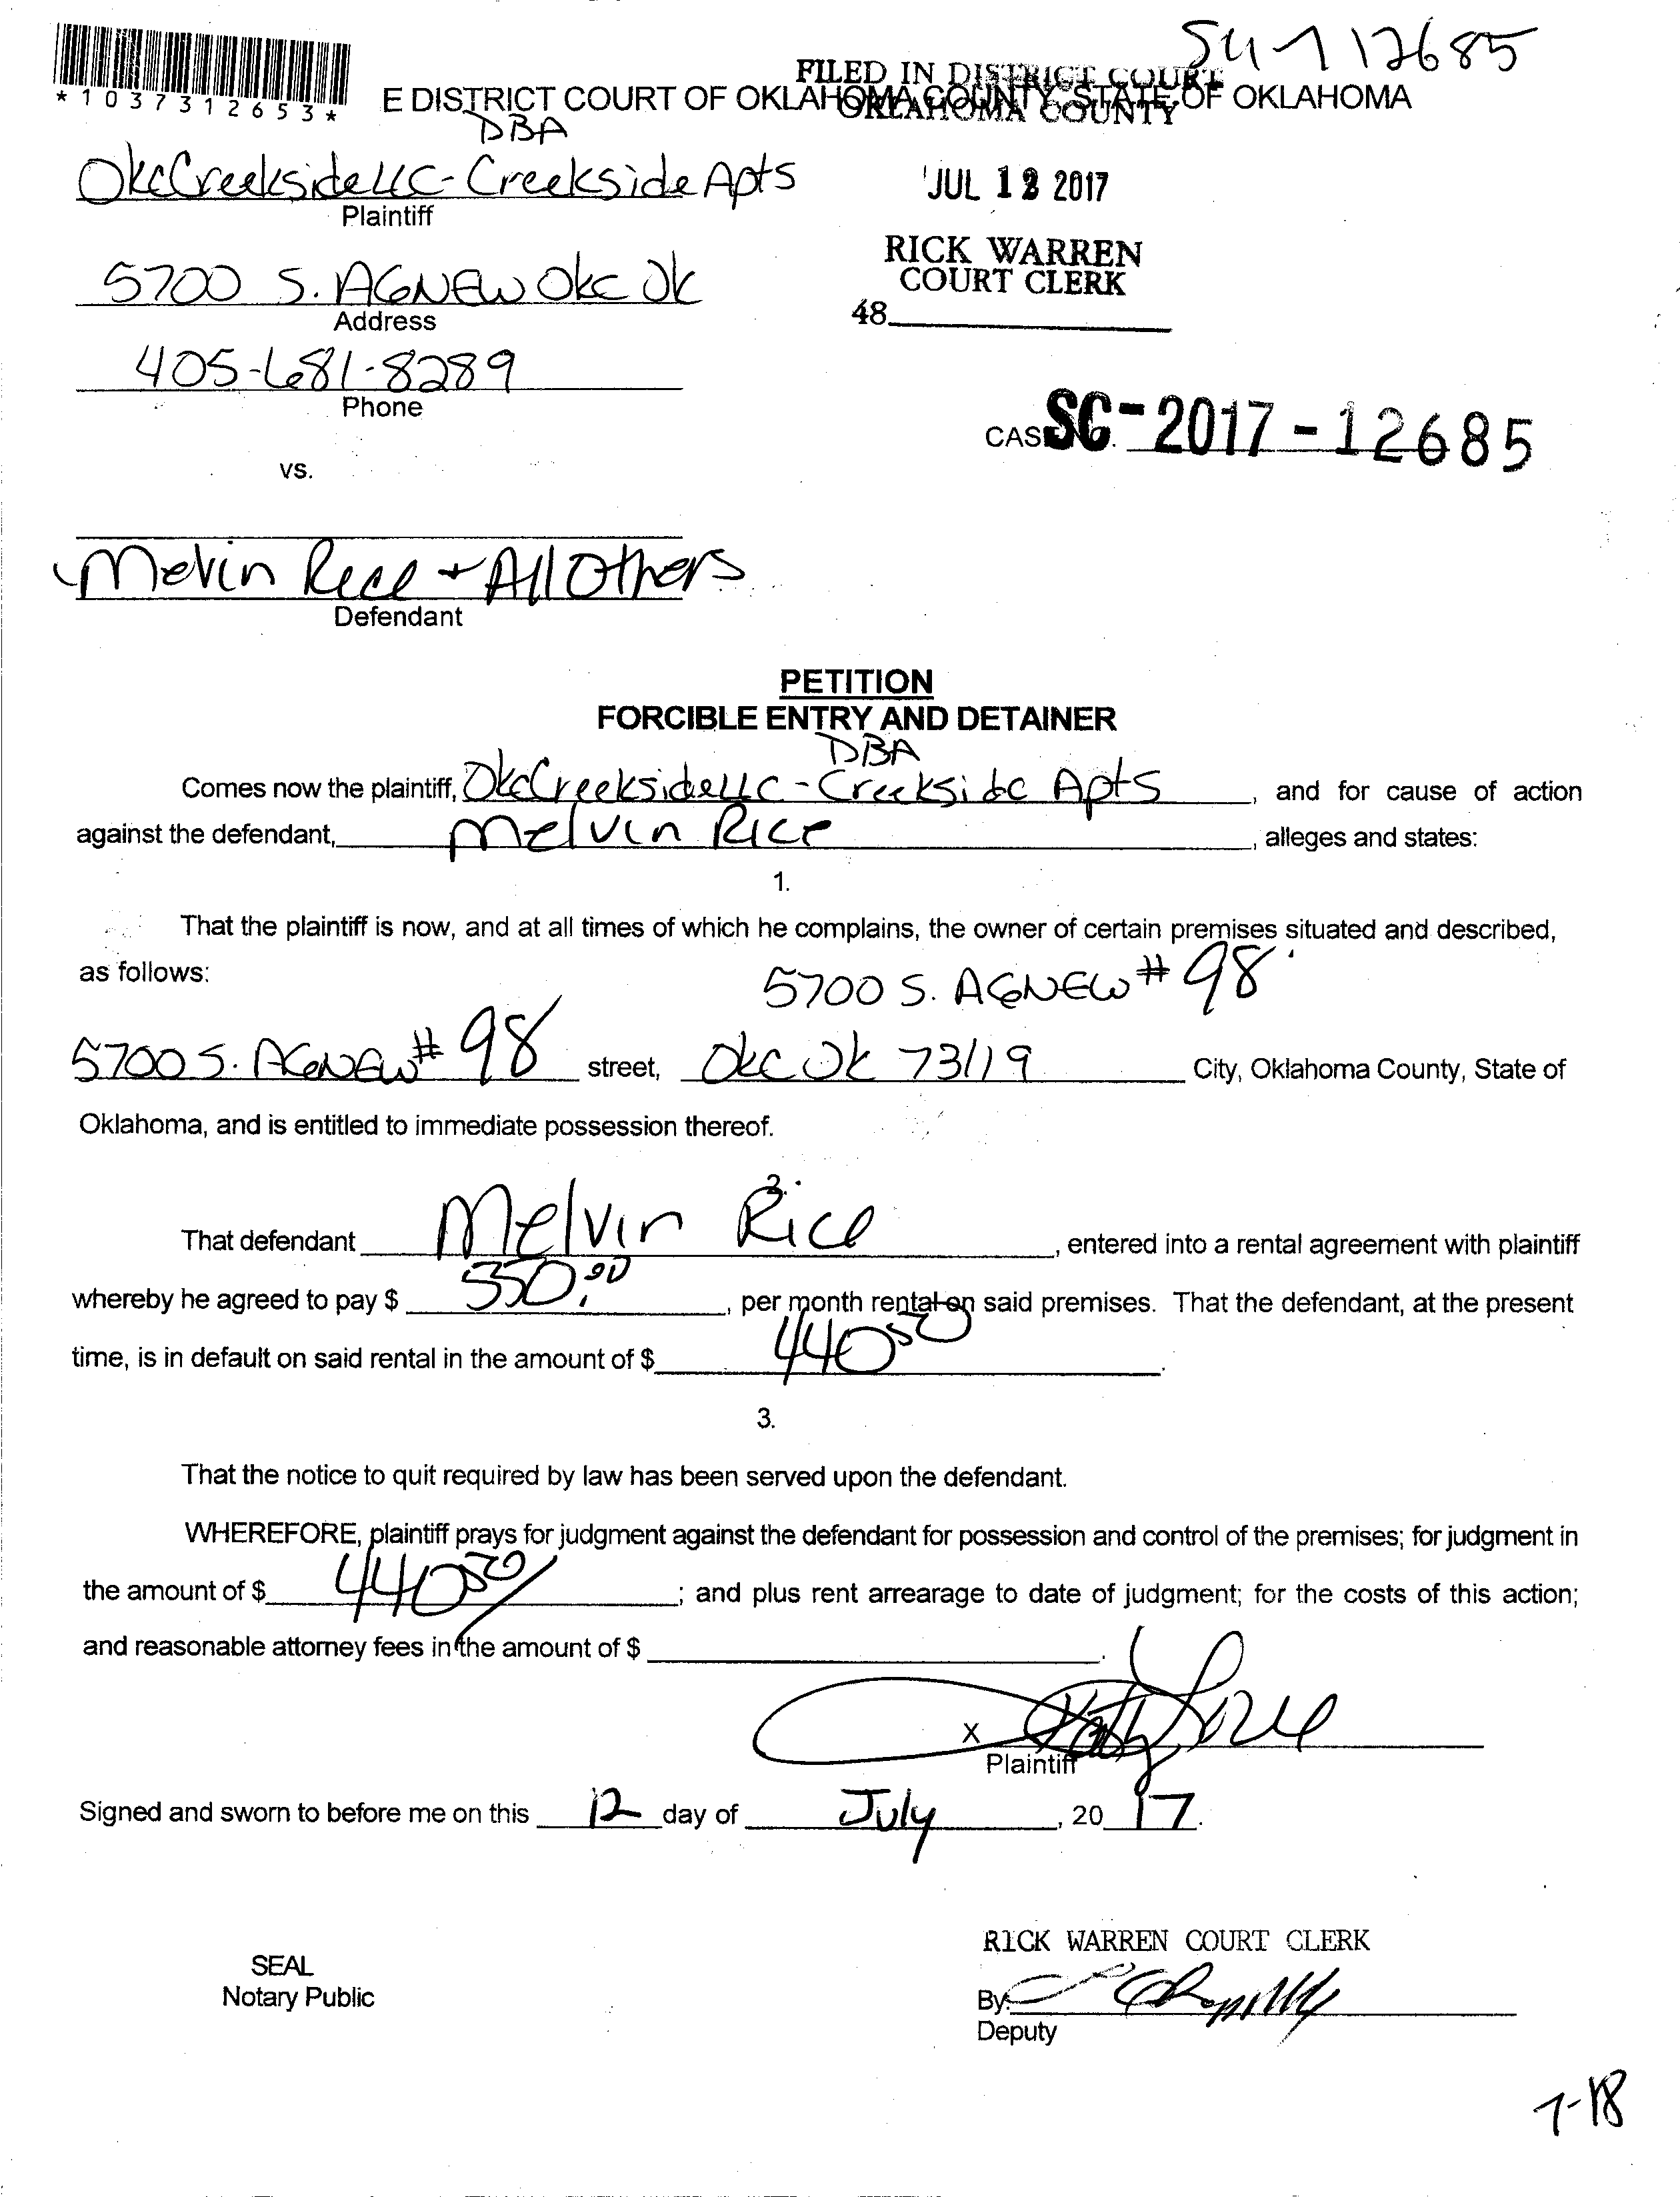 SC-17 12685
FILED IN DISTRICT COURT
OKLAHOMA COUNTY
*1037312653*
E DISTRICT COURT OF OKLAHOMA COUNTY, STATE OF OKLAHOMA
DBA
OkcCreekside LLC - Creekside Apts
Plaintiff
JUL 12 2017
RICK WARREN
COURT CLERK
48
5700 S. AGNEW Okc Ok
Address
405-681-8289
Phone
CAS SC-2017-12685
vs.
Melvin Rice + All Others
Defendant
PETITION
FORCIBLE ENTRY AND DETAINER
DBA
Comes now the plaintiff, OkcCreekside LLC - Creekside Apts, and for cause of action
against the defendant, Melvin Rice, alleges and states:
1.
That the plaintiff is now, and at all times of which he complains, the owner of certain premises situated and described,
as follows:
5700 S. AGNEW # 98
5700 S. AGNEW # 98 street, Okc Ok 73119 City, Oklahoma County, State of
Oklahoma, and is entitled to immediate possession thereof.
2.
That defendant Melvin Rice, entered into a rental agreement with plaintiff
whereby he agreed to pay $ 550.00, per month rental on said premises. That the defendant, at the present
time, is in default on said rental in the amount of $ 440.50.
3.
That the notice to quit required by law has been served upon the defendant.
WHEREFORE, plaintiff prays for judgment against the defendant for possession and control of the premises; for judgment in
the amount of $ 440.50; and plus rent arrearage to date of judgment; for the costs of this action;
and reasonable attorney fees in the amount of $ .
X
Plaintiff
Signed and sworn to before me on this 12 day of July, 20 17.
RICK WARREN COURT CLERK
SEAL
Notary Public
By:
Deputy
7-18